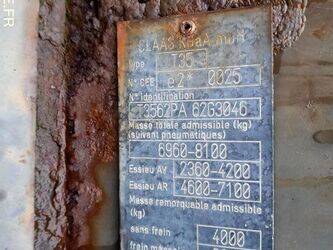 E.FR
CLAAS KGaA mbH
Type T35
N° CEE e2* 0025
N° identification
Masse totale admissible (kg)
(suivant pneumatiques)
6960-8100
Essieu AV 2360-4200
Essieu AR 4600-7100
Masse remorquable admissible
(kg)
sans frein 4000
frein